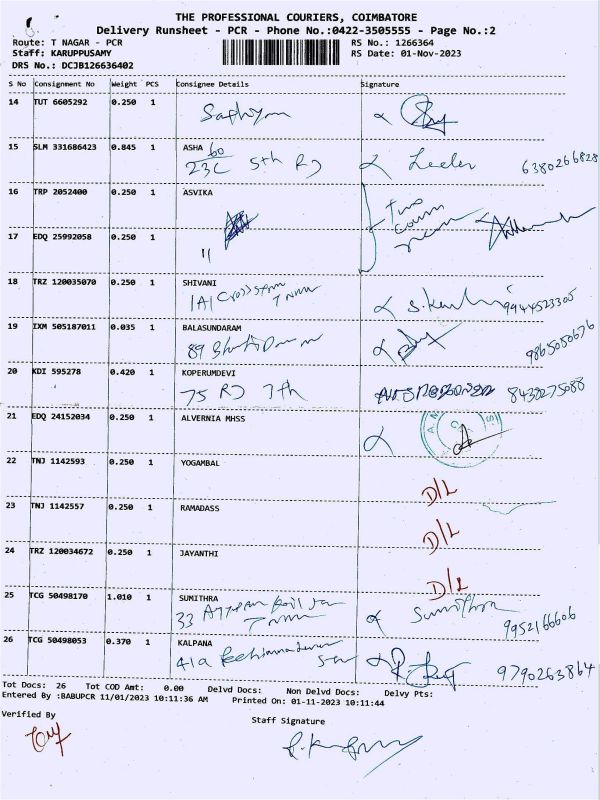 THE PROFESSIONAL COURIERS, COIMBATORE
Delivery Runsheet - PCR - Phone No.:0422-3505555 - Page No.:2
Route: T NAGAR - PCR RS No.: 1266364
Staff: KARUPPUSAMY RS Date: 01-Nov-2023
DRS No.: DCJB126636402
S No Consignment No Weight PCS Consignee Details Signature
14 TUT 6605292 0.250 1 Sathiyan
15 SLM 331686423 0.845 1 ASHA 60 Leela 6380266828
23C 5th RD
16 TRP 2052400 0.250 1 ASVIKA
17 EDQ 25992058 0.250 1 "
18 TRZ 120035070 0.250 1 SHIVANI 9944523305
1A1 Cross
19 IXM 505187011 0.035 1 BALASUNDARAM 9865050676
89
20 KDI 595278 0.420 1 KOPERUMDEVI
75 RD 7th 8438275088
21 EDQ 24152034 0.250 1 ALVERNIA MHSS
22 TNJ 1142593 0.250 1 YOGAMBAL D/L
23 TNJ 1142557 0.250 1 RAMADASS D/L
24 TRZ 120034672 0.250 1 JAYANTHI D/L
25 TCG 50498170 1.010 1 SUMITHRA Sumithra
33 9952166606
26 TCG 50498053 0.370 1 KALPANA
41a 9790263864
Tot Docs: 26 Tot COD Amt: 0.00 Delvd Docs: Non Delvd Docs: Delvy Pts:
Entered By :BABUPCR 11/01/2023 10:11:36 AM Printed On: 01-11-2023 10:11:44
Verified By Staff Signature